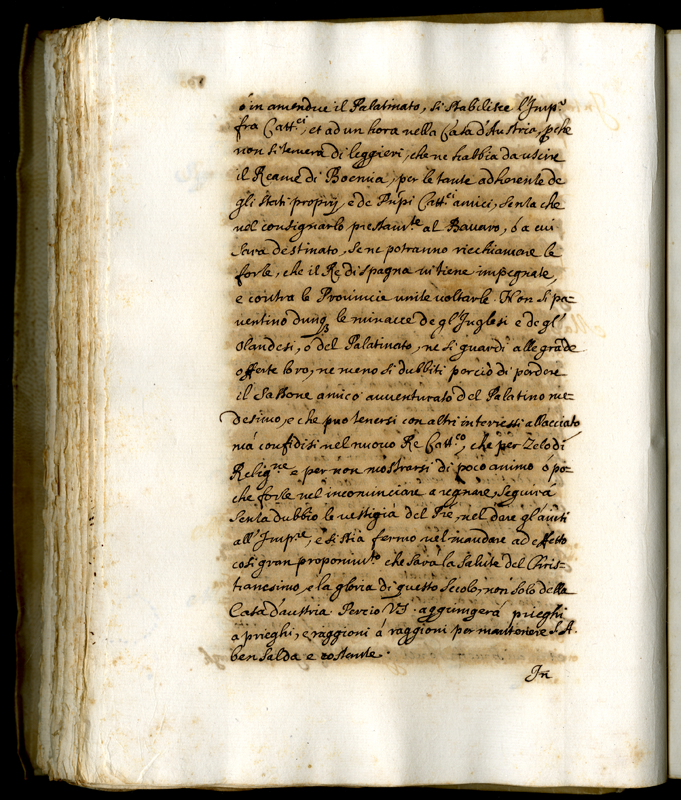 ó in amendue il Palatinato, si stabilisce l'Imp.º
fra Catt.ci, et ad un hora nella Casa d'Austria, pche
non si temerà di leggieri, che ne habbia da uscire
il Reame di Boemia, per le tante adherente de
gli stati proprij, e de Prĩpi Catt.ci amici, senza che
nel consignarlo prestam.te al Bavaro, ó a cui
sarà destinato, se ne potranno ricchiamare le
forze, che il Re di spagna vi tiene impegnate,
e contra le Provincie unite voltarle. Non si pa-
ventino dunq3 le minacce de gl'Inglesi e de gl'
Olandesi, o del Palatinato, ne si guardi alle grãde
offerte loro, ne meno si dubbiti perciò di perdere
il Sassone amico avventurato del Palatino me-
desimo, e che può tenersi con altri interessi allacciato
má confidisi nel nuovo Re Catt.co, che per Zelo di
Relig.ne e per non mostrarsi di poco animo ó po-
che forze nel incominciare a regnare, seguirá
senza dubbio le vestigia del Prẽ, nel dare gl'aiuti
all'Imp.re, e si stia fermo nel mandare ad effetto
cosi gran proponim.to che sarà la salute del Chris-
tianesimo, e la gloria di questo Secolo, non solo della
Casa d'austria. Percio VS. aggiungerá prieghi
a prieghi, e raggioni á raggioni per mantenere S.A.
ben salda e costante.
In